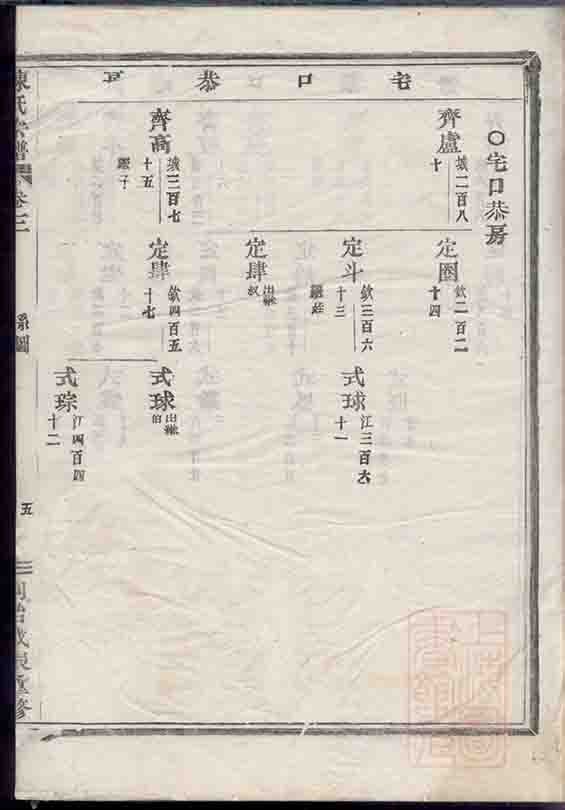 宅口恭房
〇宅口恭房
齊盧
城二百八
十
齊高
城三百七
十五
繼子
定圈
欽二百二
十四
定斗
欽三百六
十三
繼姪
定肆
出繼
叔
定肆
欽四百五
十七
式球
江三百六
十一
式球
出繼
伯
式琮
江四百四
十二
陳氏宗譜
卷三
系圖
五
同治戊辰重修